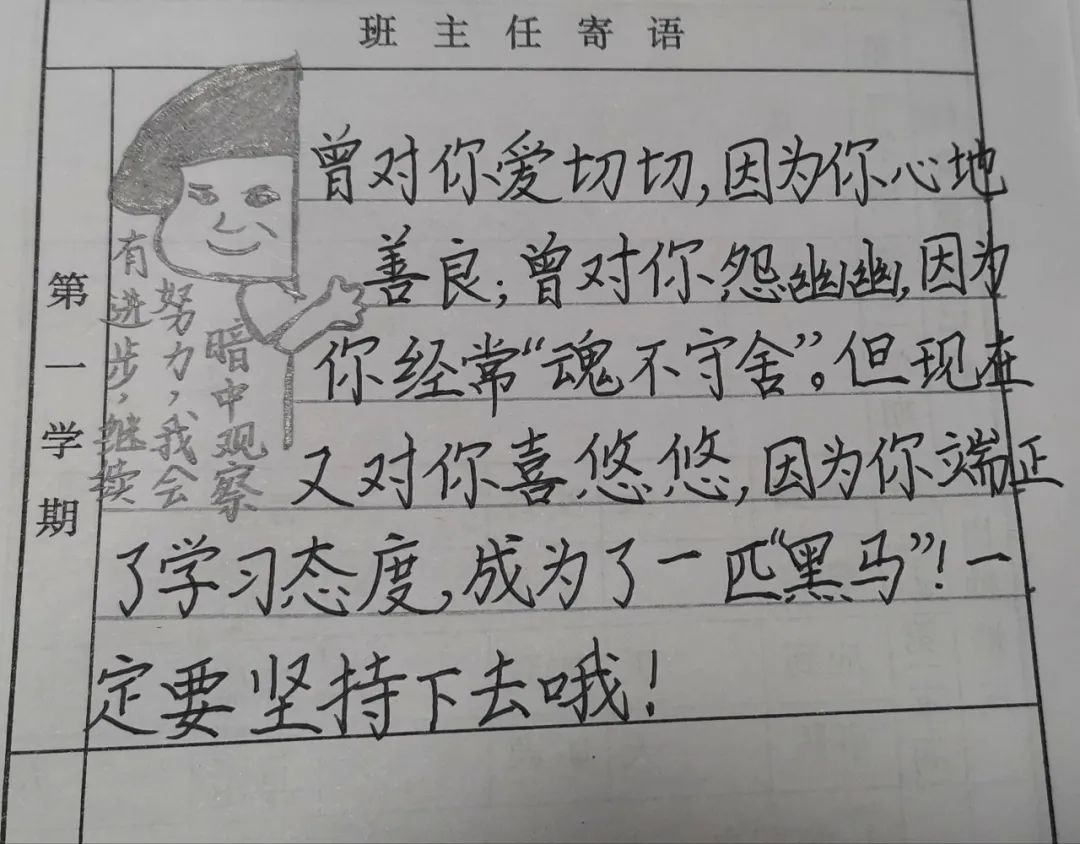 班主任寄语
第一学期
有进步，继续
努力，我会
暗中观察
曾对你爱切切，因为你心地
善良；曾对你怨幽幽，因为
你经常“魂不守舍”。但现在
又对你喜悠悠，因为你端正
了学习态度，成为了一匹“黑马”！一
定要坚持下去哦！